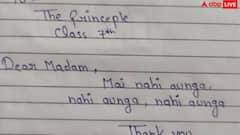 abp LIVE
The Principle
Class 7th
Dear Madam,
Mai nahi aunga,
nahi aunga, nahi aunga
Thank you